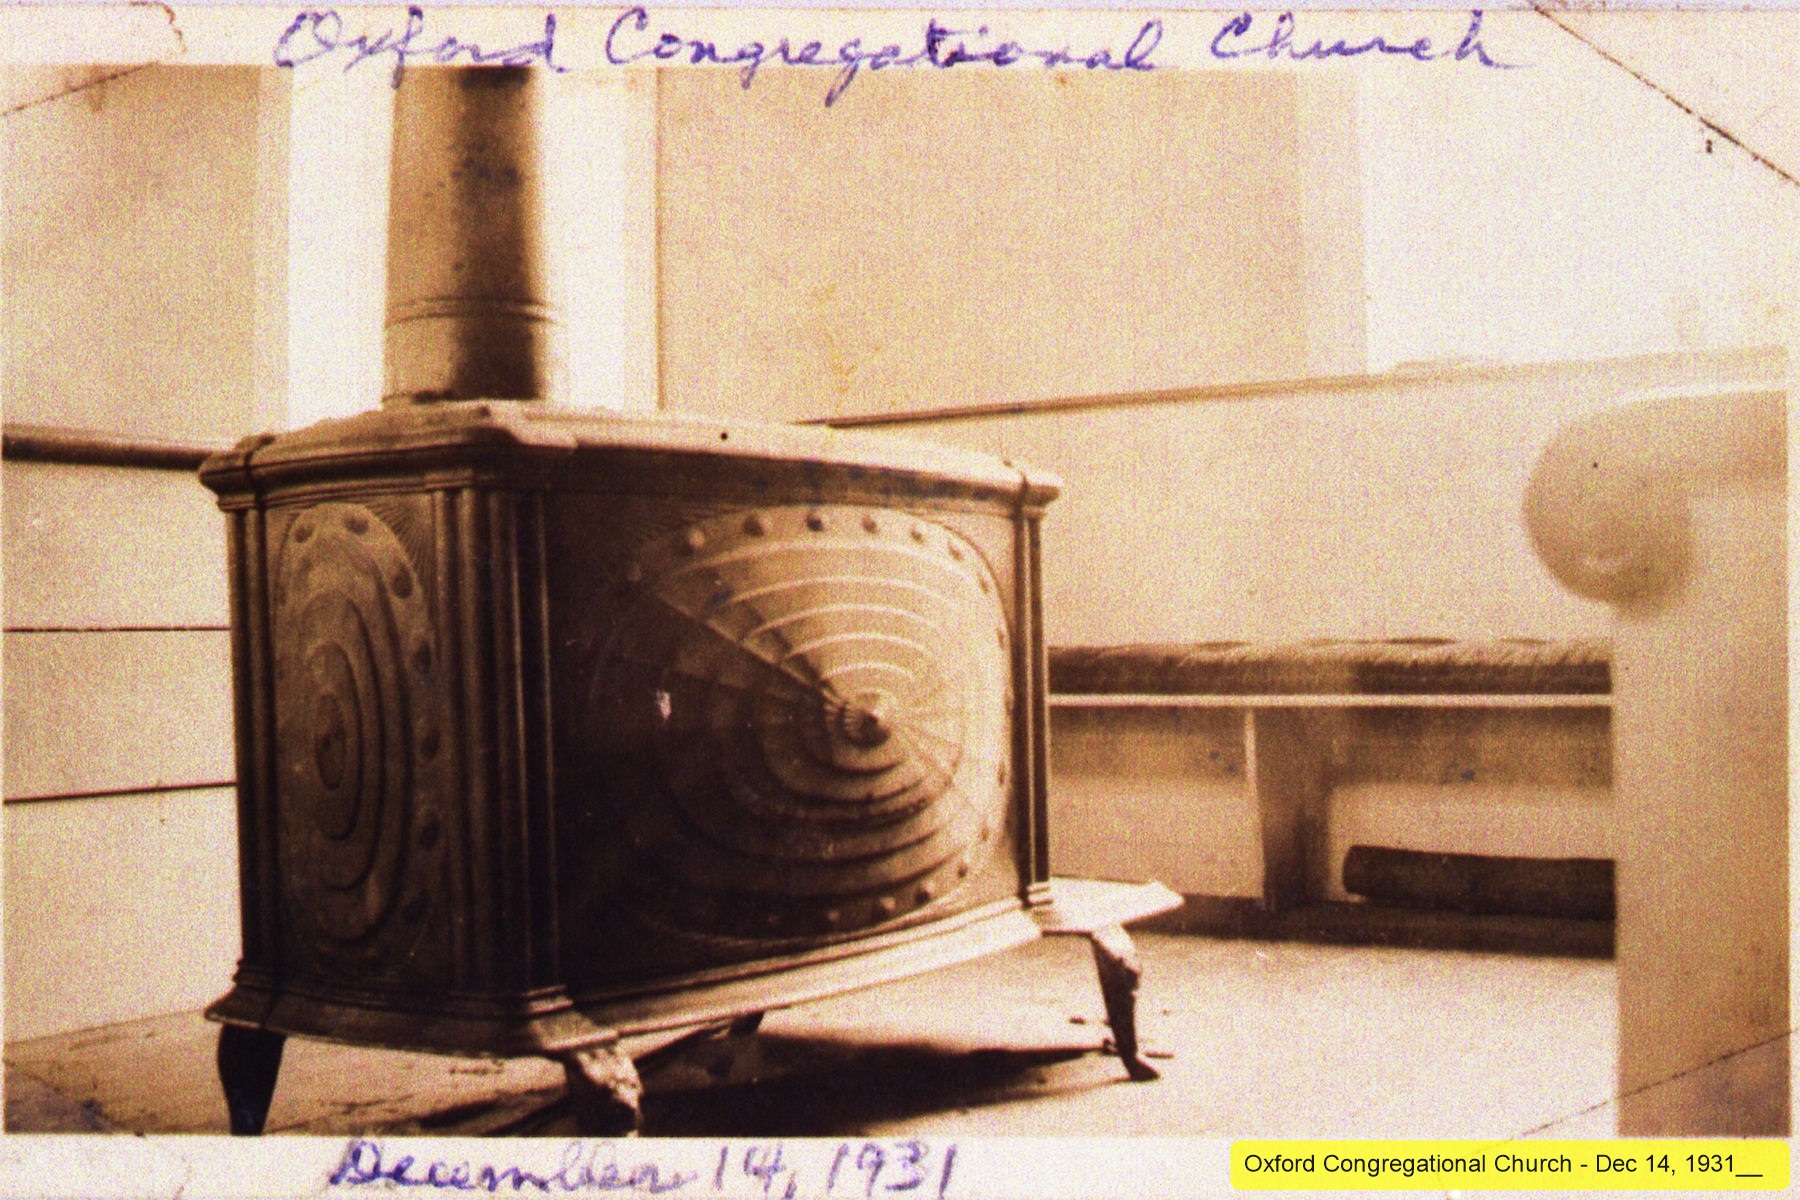 Oxford Congregational Church
December 14, 1931
Oxford Congregational Church - Dec 14, 1931__